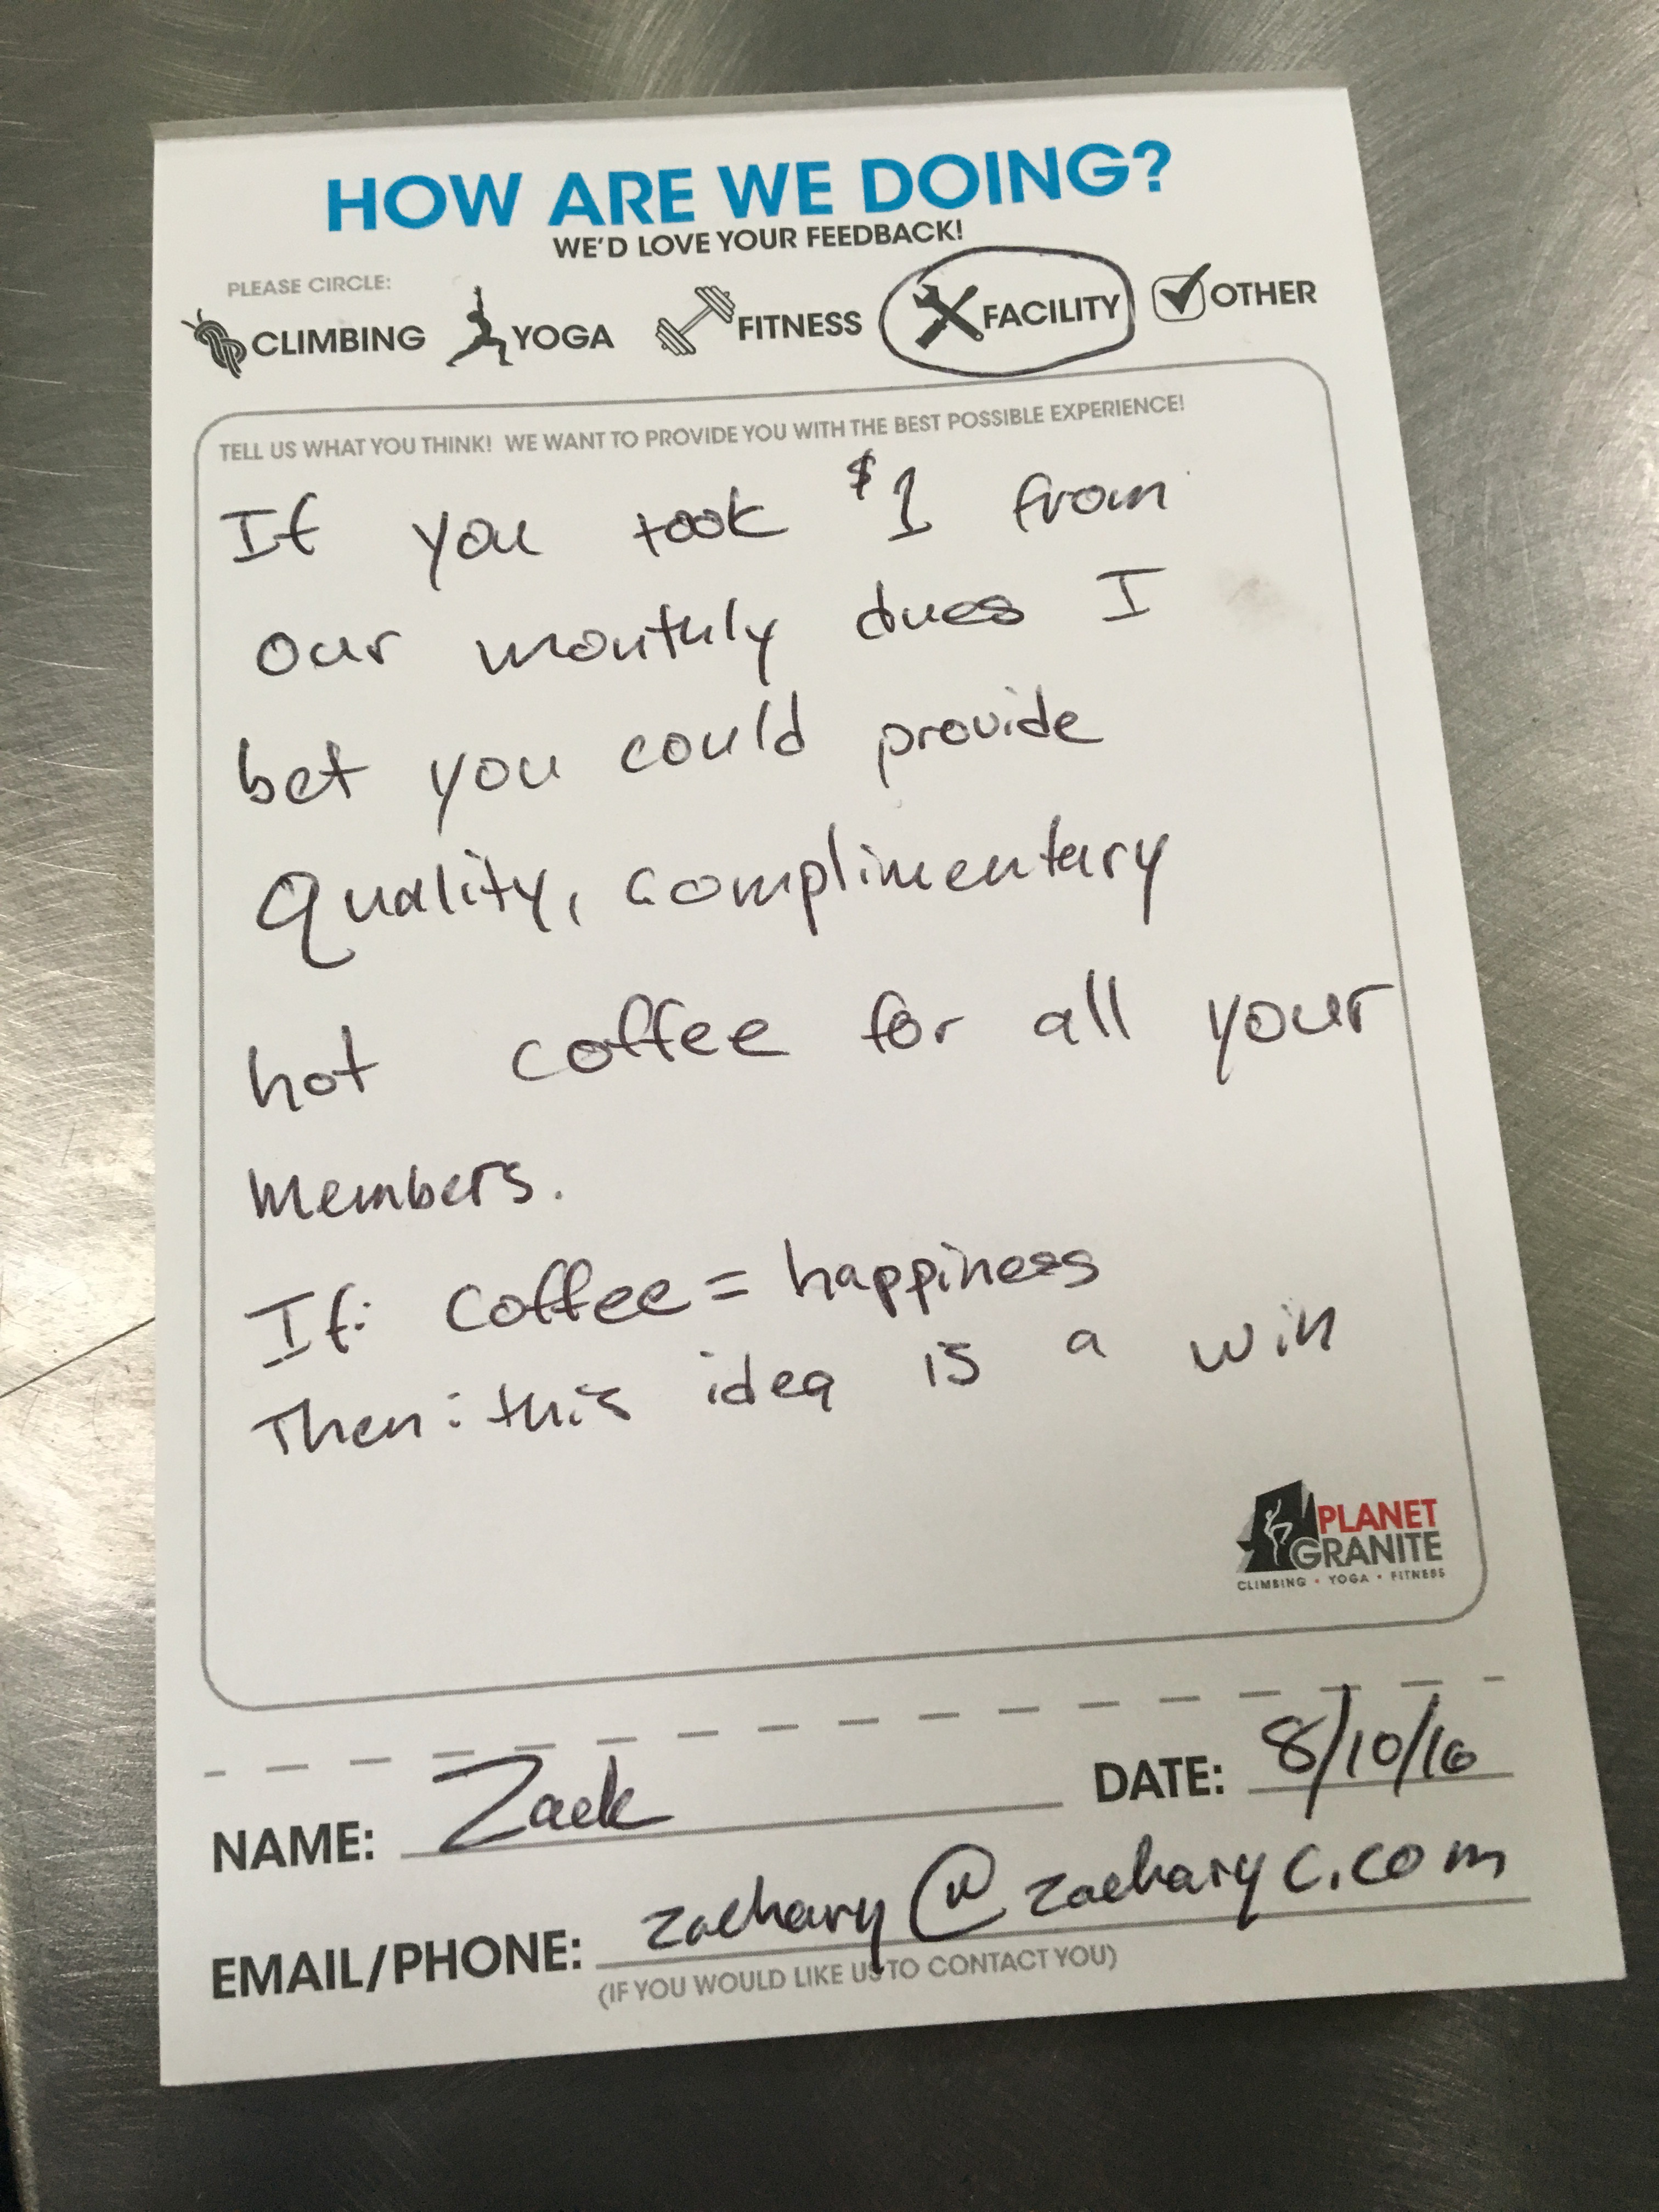 HOW ARE WE DOING?
WE'D LOVE YOUR FEEDBACK!
PLEASE CIRCLE:
CLIMBING YOGA FITNESS FACILITY OTHER
TELL US WHAT YOU THINK! WE WANT TO PROVIDE YOU WITH THE BEST POSSIBLE EXPERIENCE!
If you took $1 from
our monthly dues I
bet you could provide
Quality, complimentary
hot coffee for all your
members.
If: Coffee = happiness
Then: this idea is a win
PLANET
GRANITE
CLIMBING • YOGA • FITNESS
NAME: Zack DATE: 8/10/16
EMAIL/PHONE: zachary@zacharyc.com
(IF YOU WOULD LIKE US TO CONTACT YOU)